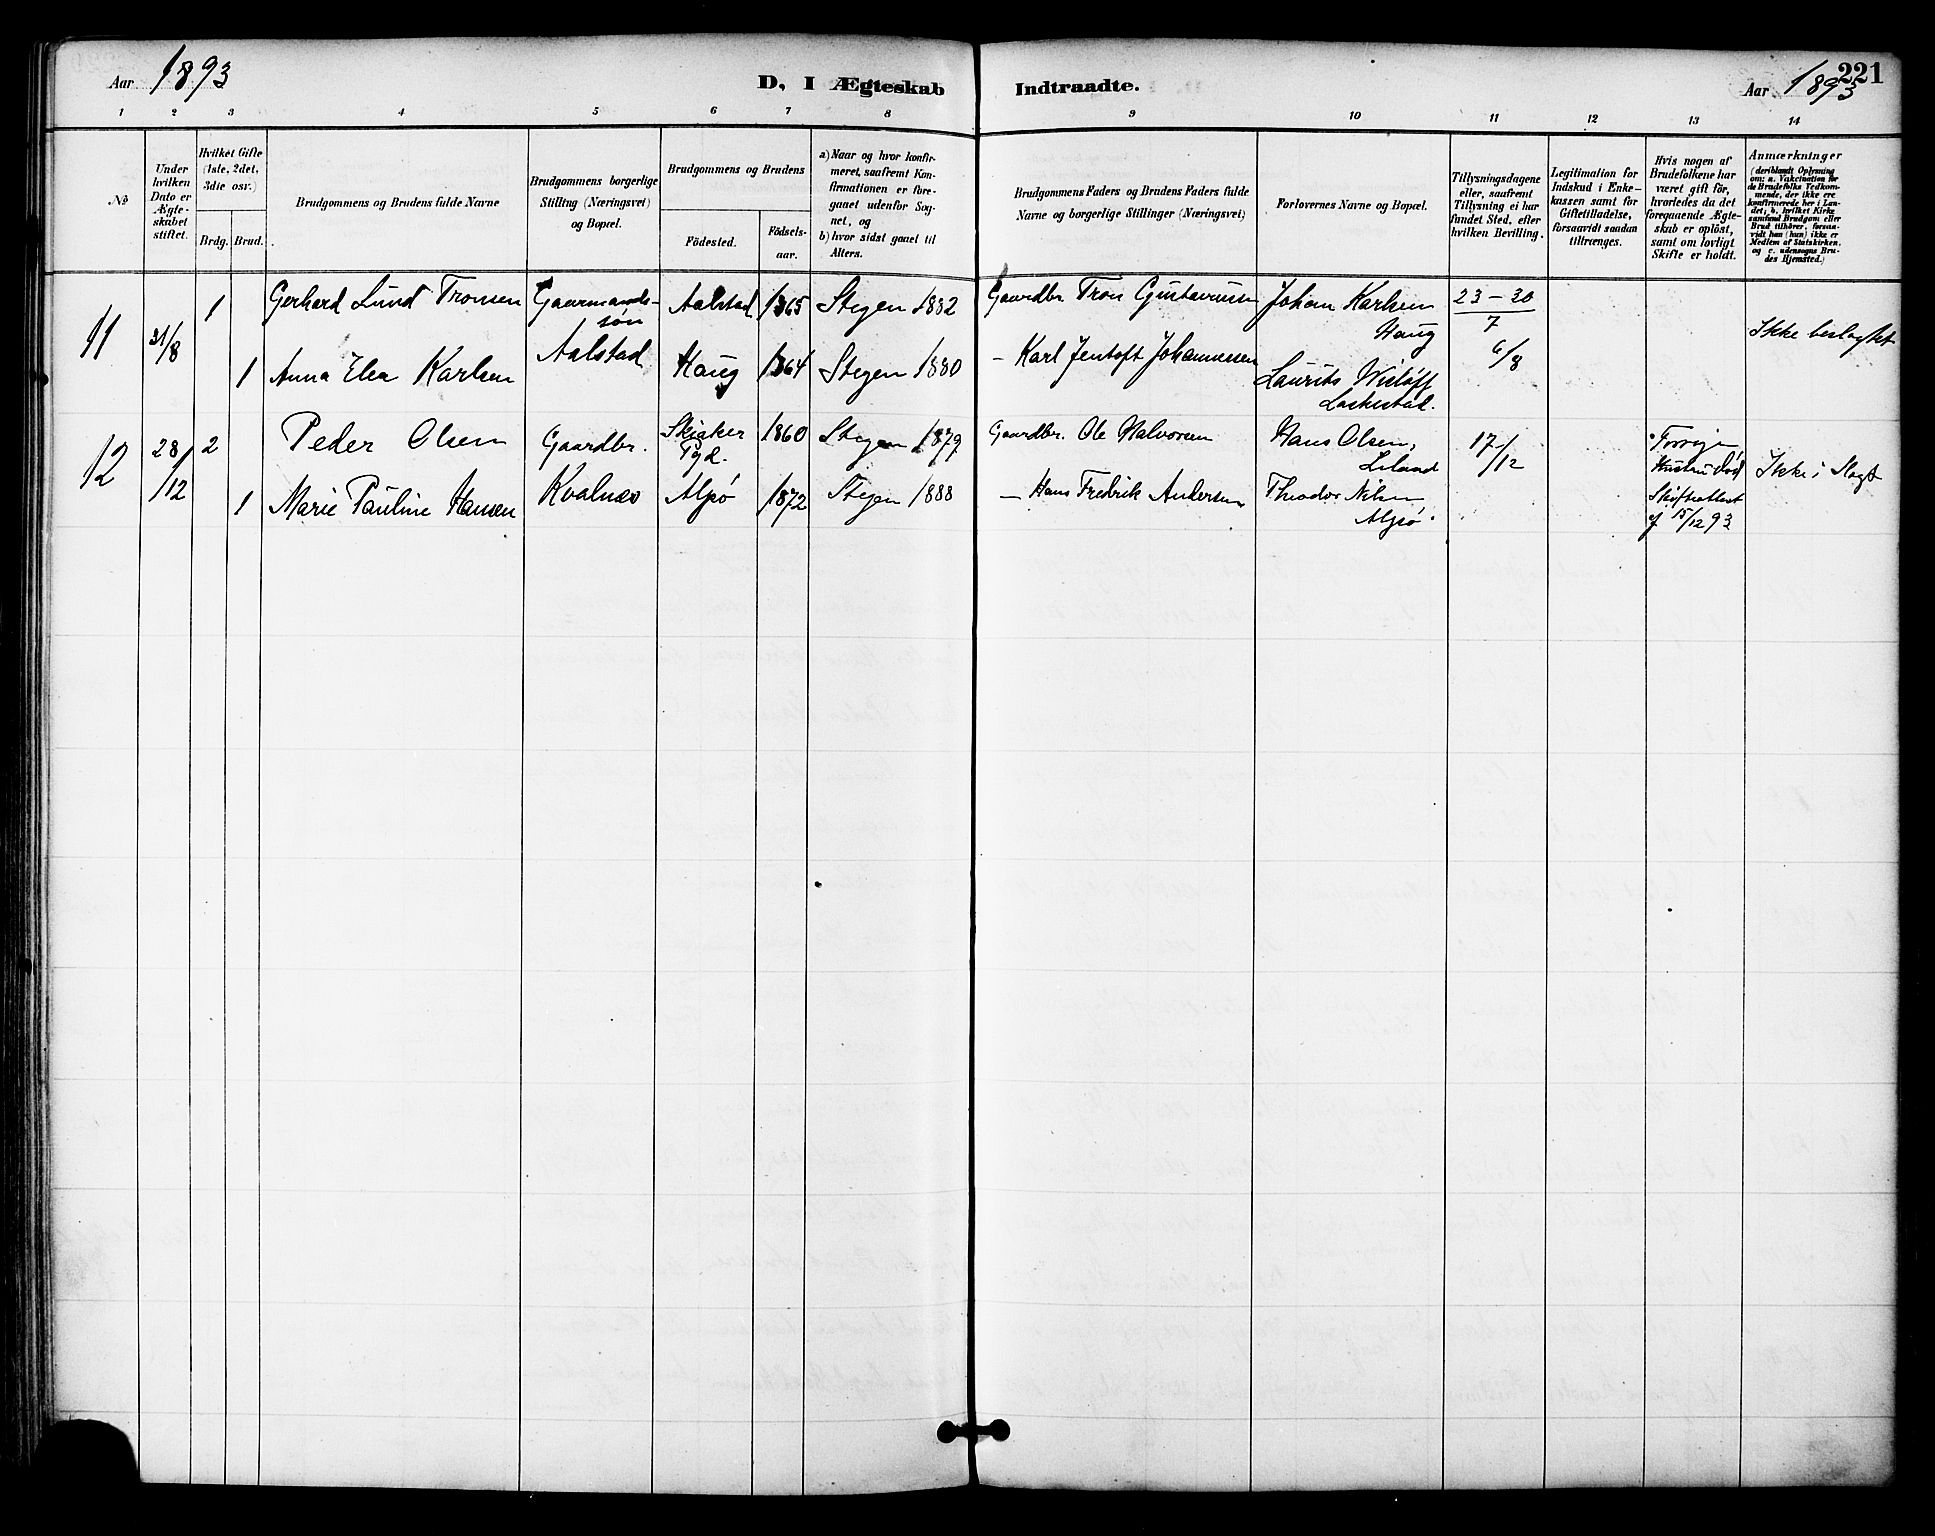 Aar 1893
D, I Ægteskab Indtraadte.
Aar 1893
221
1 2 3 4 5 6 7 8 9 10 11 12 13 14
№
Under hvilken Dato er Ægteskabet stiftet.
Hvilket Gifte (1ste, 2det, 3die osv.)
Brdg. Brud.
Brudgommens og Brudens fulde Navne
Brudgommens borgerlige Stilling (Næringsvei) og Bopæl.
Brudgommens og Brudens
Födested.
Födselsaar.
a) Naar og hvor konfirmeret, saafremt Konfirmationen er foregaaet udenfor Sognet, og
b) hvor sidst gaaet til Alters.
Brudgommens Faders og Brudens Faders fulde Navne og borgerlige Stillinger (Næringsvei)
Forlovernes Navne og Bopæl.
Tillysningsdagene eller, saafremt Tillysning ei har fundet Sted, efter hvilken Bevilling.
Legitimation for Indskud i Enkekassen samt for Giftetilladelse, forsaavidt saadan tiltrænges.
Hvis nogen af Brudefolkene har været gift för, hvorledes da det foregaaende Ægteskab er oplöst, samt om lovligt Skifte er holdt.
Anmærkninger (deriblandt Oplysning om: a. Vakcination for de Brudefolks Vedkommende, der ikke ere konfirmerede her i Landet; b. hvilket Kirkesamfund Brudgom eller Brud tilhörer, forsaavidt han (hun) ikke er Medlem af Statskirken, og c. udensogns Brudes Hjemsted.)
11 31/8 1 Gerhard Lund Tronsen Gaarmandssøn Aalstad Aalstad 1865 Stegen 1882 Gaardbr Tron Gustavussen Johan Karlsen Haug 23-30/7 Ikke beslagtet
1 Anna Elea Karlsen Haug 1864 Stegen 1880 - Karl Jentoft Johannessen Laurits Wisløff Laskestad. 6/8
12 28/12 2 Peder Olsen Gaardbr. Kvalnæs Skjaker Pgd. 1860 Stegen 1879 Gaardbr. Ole Halvorsen Hans Olsen, Leland 17/12 Forrige Hustru død Skifteattest af 15/12 93 Ikke i Slagt
1 Marie Pauline Hansen Alpsø 1872 Stegen 1888 - Hans Fredrik Andersen Theodor Nilsen Alpsø.